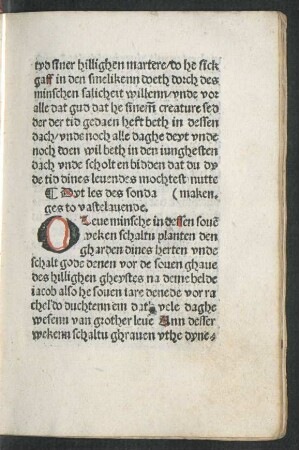 tyd siner hillighen martere/ do he sick
gaff in den smelikenn doeth dorch des
minschen salicheit willenn/ vnde vor
alle dat gud dat he sinem̃ creature sed
der der tid gedaen heft beth in dessen
dach/ vnde noch alle daghe deyt vnde
noch doen wil beth in den iunghesten
dach vnde scholt en bidden dat du dy
de tid dines leuendes mochtest nutte
¶ Dyt les des sonda (maken.
ges to vastelauende.
O Leue minsche in dessen souẽ
weken schaltu planten den
gharden dines herten vnde
schalt gode denen vor de souen ghaue
des hillighen gheystes na deme belde
iacob also he souen iare denede vor ra
chel do duchten em dat vele daghe
wesenn van grother leue Ann desser
wekenn schaltu ghrauen vthe dyne-